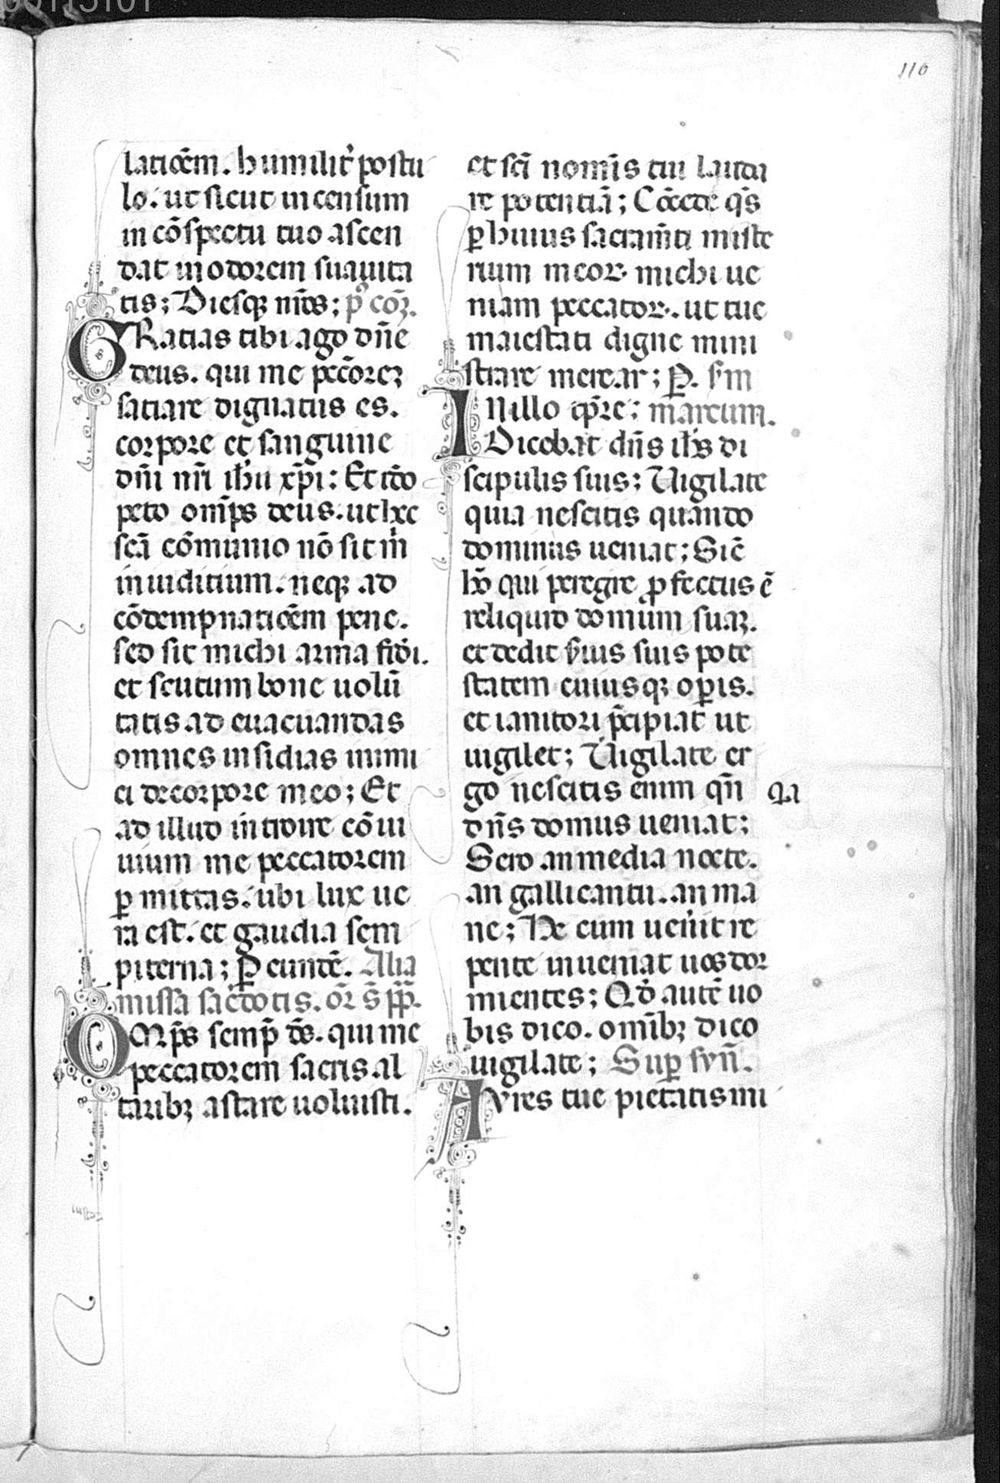 116
latiōem. humilit᷑ postu
lo. ut sicut incensum
in cōspectu tuo ascen
dat in odorem suauita
tis; Diesqꝫ nr̄os; p᷑ cōꝫ.
GRatias tibi ago dn̄e
deus. qui me pecc̄orēꝫ
satiare dignatus es.
corpore et sanguine
dn̄i nr̄i ih̄u xp̄i; Et iō
peto om̄ps deus. ut hec
sc̄a cōmunio nō sit m̄
in iuditium. neqꝫ ad
cōdempnatiōem pene.
sed sit michi arma fidei.
et scutum bone uolū
tatis ad euacuandas
omnes insidias inimi
ci de corpore meo; Et
ad illud introire cōui
uium me peccatorem
ꝑmittas. ubi lux ue
ra est. et gaudia sem
piterna; P̄ eundē. Alia
missa sac̄dotis. or̄ s̄ pp̄.
OMp̄s semp̄ ds̄. qui me
peccatorem sacris al
taribꝫ astare uoluisti.
et sc̄i nomīs tui lauda
re potentiā; Cōcede qs̄
ꝑ huius sacram̄ti miste
rium meoꝝ michi ue
niam peccatoꝝ. ut tue
maiestati digne mini
strare merear; P̄. s̄m
INillo tp̄re; marcum.
Dicebat dn̄s ih̄s di
scipulis suis; Uigilate
quia nescitis quando
dominus ueniat; Sic̄
hō qui peregre ꝓfectus ē
reliquid domum suaꝫ.
et dedit s̄uis suis pote
statem cuiusqꝫ oꝑis.
et ianitori p̄cipiat ut
uigilet; Uigilate er
go nescitis enim qn̄
dn̄s domus ueniat;
Sero an media nocte.
an gallicantu. an ma
ne; Ne cum uen̄it re
pente inueniat uos dor
mientes; Qd̄ autē uo
bis dico. omībꝫ dico
uigilate; Suꝑ syn̄.
AYres tue pietatis mi